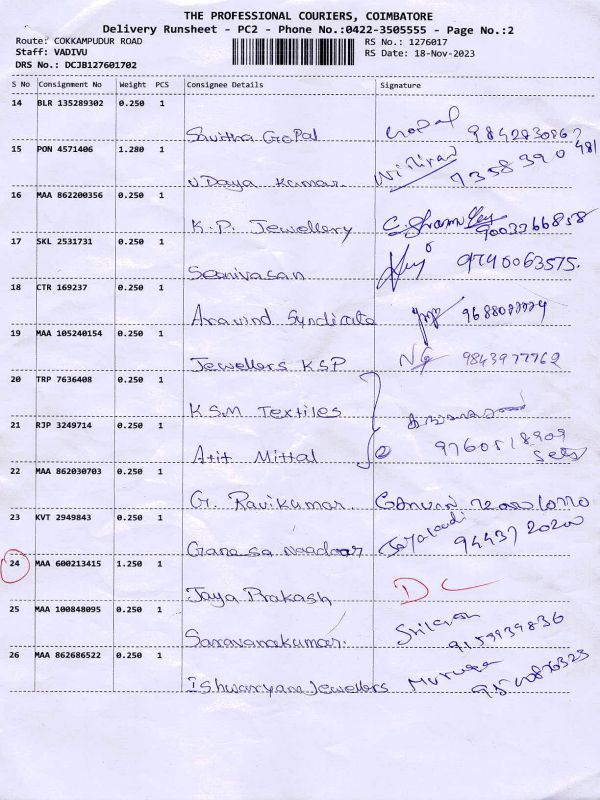 THE PROFESSIONAL COURIERS, COIMBATORE
Delivery Runsheet - PC2 - Phone No.:0422-3505555 - Page No.:2
Route: COKKAMPUDUR ROAD RS No.: 1276017
Staff: VADIVU RS Date: 18-Nov-2023
DRS No.: DCJB127601702
S No Consignment No Weight PCS Consignee Details Signature
14 BLR 135289302 0.250 1
Savitha Gopal Gopal
15 PON 4571406 1.280 1
Udaya Kumar 7358390481
16 MAA 862200356 0.250 1
K.P. Jewellery 9003266858
17 SKL 2531731 0.250 1
Seenivasan 9790063575.
18 CTR 169237 0.250 1
Aravind Syndicate
19 MAA 105240154 0.250 1
Jewellers KSP 9843977762
20 TRP 7636408 0.250 1
KSM Textiles
21 RJP 3249714 0.250 1
Atit Mittal
22 MAA 862030703 0.250 1
G. Ravikumar
23 KVT 2949843 0.250 1
Ganesa Naadaar 9443720200
24 MAA 600213415 1.250 1
Jaya Prakash DC
25 MAA 100848095 0.250 1
Saravanakumar. 9159939836
26 MAA 862686522 0.250 1
Ishwaryam Jewellers Murugan